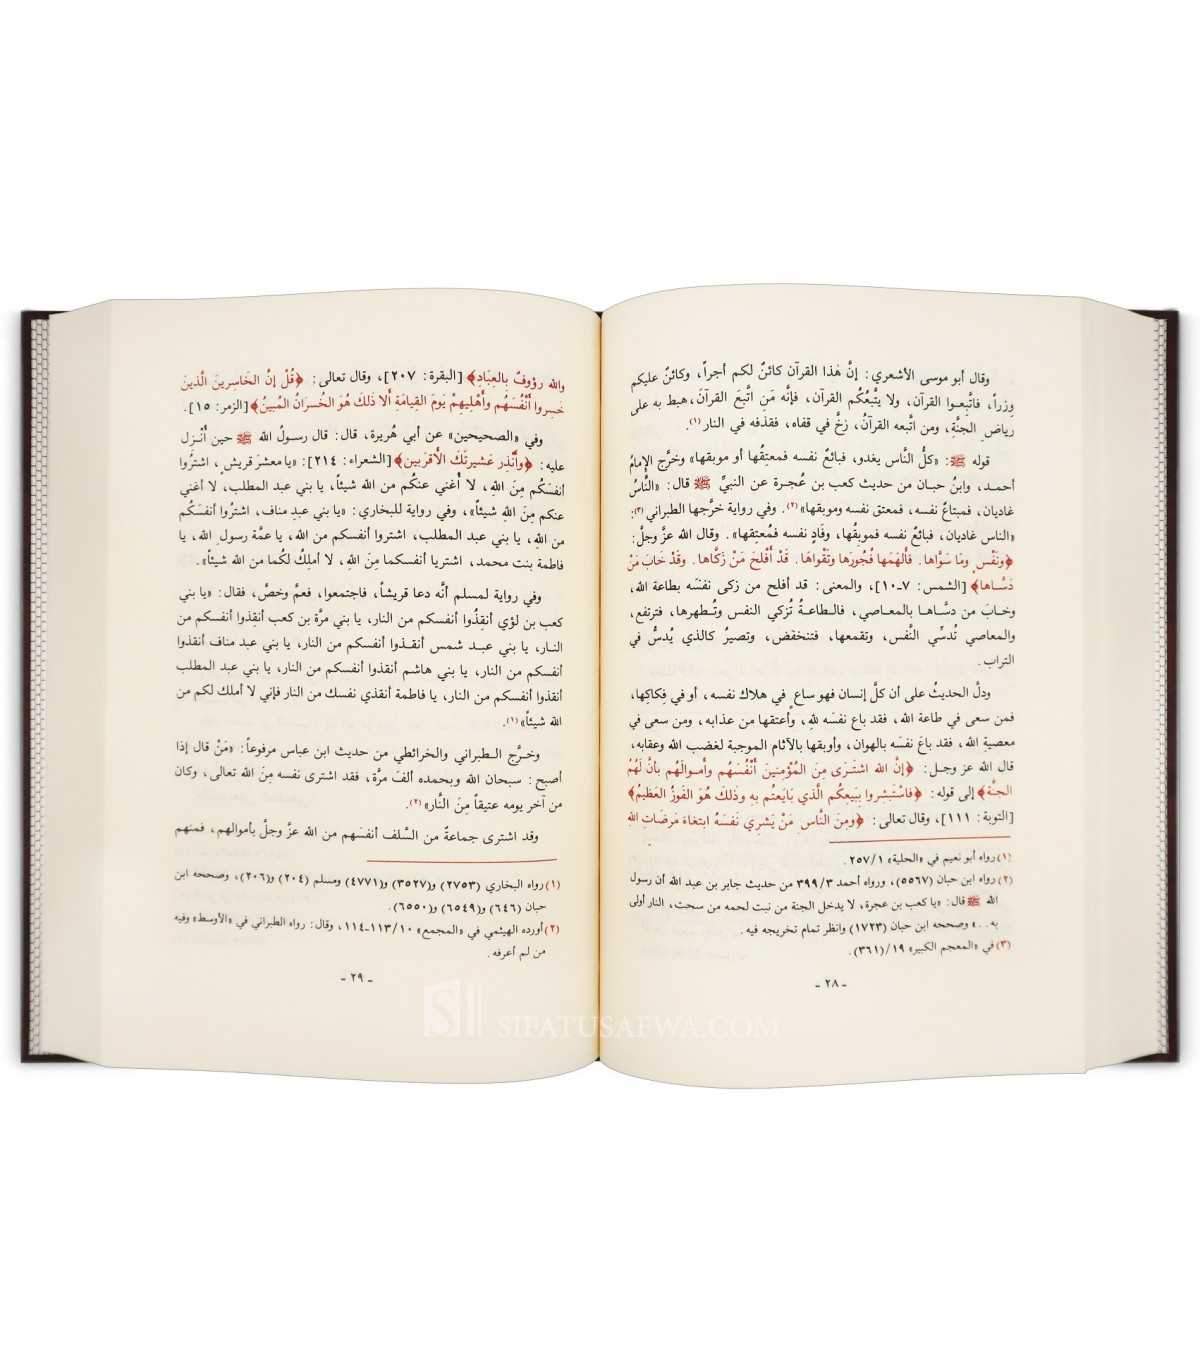 وقال أبو موسى الأشعري: إنَّ هٰذا القرآن كائنٌ لكم أجراً، وكائنٌ عليكم
وِزراً، فاتَّبِعـوا القرآن، ولا يتَّبعُكُم القرآن، فإنَّه مَنِ اتَّبعَ القرآنَ، هبط به على
رياضِ الجنَّةِ، ومن اتَّبعه القرآنُ، زخَّ في قفاه، فقذفه في النار(١).
قوله ﷺ: «كلُّ النَّاس يغدو، فبائعٌ نفسه فمعتِقُها أو موبقها» وخرَّج الإمامُ
أحمـد، وابنُ حبـان من حديث كعب بن عُجـرة عن النبيِّ ﷺ قال: «النَّاسُ
غاديان، فمبتاعٌ نفسه، فمعتق نفسه وموبقها»(٢). وفي رواية خرَّجها الطبراني(٣):
«الناس غاديان، فبائعٌ نفسه فموبقُها، وفَادٍ نفسه فمُعتِقها». وقال الله عزَّ وجلَّ:
﴿ونَفْسٍ ومَا سَوَّاها. فألهَمَها فُجُورَها وتَقْواهَا. قَدْ أَفْلَحَ مَنْ زَكَّاها. وقَدْ خَابَ مَنْ
دَسَّـاها﴾ [الشمس: ٧ـ١٠]، والمعنى: قد أفلح من زكى نفسَه بطاعة الله،
وخـابَ من دسَّـاهـا بالمعـاصي، فالـطاعـةُ تُزكي النفس وتُـطهرها، فترتفع،
والمعاصي تُدسِّي النَّفس، وتقمعها، فتنخفض، وتصيرُ كالذي يُدسُّ في
التراب.
ودلَّ الحديثُ على أن كلَّ إنسان فهو ساعٍ في هلاك نفسه، أو في فِكاكِها،
فمن سعى في طاعة الله، فقد باع نفسَه للهِ، وأعتقها من عذابه، ومن سعى في
معصيةِ الله، فقد باعَ نفسَه بالهوان، وأوبقها بالآثام الموجبة لغضب الله وعقابه،
قال الله عز وجـل: ﴿إنَّ الله اشتَـرَى مِنَ المُؤْمِنينَ أَنْفُسَهُم وأَمـوالَهُم بأنَّ لَهُمُ
الجنَّة﴾ إلى قوله: ﴿فاسْتَبشِروا بِبَيعِكُم الَّذي بَايَعتُم بهِ وذلكَ هُوَ الفَوزُ العَظيمُ﴾
[التوبة: ١١١]، وقال تعالى: ﴿ومِنَ النَّاسِ مَنْ يَشري نَفسَهُ ابتغاءَ مَرضَاتِ اللهِ
(١) رواه أبو نعيم في «الحلية» ٢٥٧/١.
(٢) رواه ابن حبان (٥٥٦٧)، ورواه أحمد ٣٩٩/٣ من حديث جابر بن عبد الله أن رسول
الله ﷺ قال: «يا كعب بن عجرة، لا يدخل الجنة من نبت لحمه من سحت، النار أولى
به..» وصححه ابن حبان (١٧٢٣) وانظر تمام تخريجه فيه.
(٣) في «المعجم الكبير» ١٩/(٣٦١).
ـ ٢٨ ـ
والله رؤوفٌ بالعِبَادِ﴾ [البقرة: ٢٠٧]، وقال تعالى: ﴿قُلْ إنَّ الخَاسِرينَ الَّذينَ
خَسِروا أَنْفُسَهُم وأَهْلِيهِمْ يَومَ القِيامَةِ أَلا ذَلكَ هُوَ الخُسرَانُ المُبينُ﴾ [الزمر: ١٥].
وفي «الصحيحين» عن أبي هُريرة، قال: قال رسـولُ الله ﷺ حين أُنْـزِل
عليه: ﴿وأَنْذِر عَشيرتَكَ الأَقرَبين﴾ [الشعراء: ٢١٤]: «يا معشرَ قريشٍ، اشترُوا
أنفسَكُم مِنَ اللهِ، لا أُغني عنكُم من الله شيئاً، يا بني عبد المطلب، لا أغني
عنكم مِنَ اللهِ شيئاً»، وفي رواية للبخاري: «يا بني عبدِ مناف، اشترُوا أنفسَكُم
من اللهِ، يا بني عبد المطلب، اشتروا أنفسكم من الله، يا عمَّة رسولِ الله، يا
فاطمة بنت محمد، اشتريا أنفسكما مِنَ اللهِ، لا أملِكُ لكُما من الله شيئاً».
وفي رواية لمسلم أنَّه دعا قريشاً، فاجتمعوا، فعمَّ وخصَّ، فقال: «يا بني
كعب بن لؤي أنقِذُوا أنفسكم من النار، يا بني مرَّة بن كعب أنقِذوا أنفسكم من
النـار، يا بني عبـد شمس أنقـذوا أنفسكم من النار، يا بني عبد مناف أنقذوا
أنفسكم من النار، يا بني هاشم أنقذوا أنفسكم من النار، يا بني عبد المطلب
أنقذوا أنفسكم من النار، يا فاطمة أنقذي نفسك من النار فإني لا أملك لكم من
الله شيئاً»(١).
وخـرَّج الـطبراني والخرائطي من حديث ابن عباس مرفوعاً: «مَنْ قال إذا
أصبح: سبحان الله وبحمده ألفَ مرَّة، فقد اشترى نفسه مِنَ الله تعالى، وكان
من آخر يومه عتيقاً مِنَ النَّار»(٢).
وقد اشترى جماعةٌ من السَّلف أنفسَهم من الله عزَّ وجلَّ بأموالهم، فمنهم
(١) رواه البخاري (٢٧٥٣) و(٣٥٢٧) و(٤٧٧١) ومسلم (٢٠٤) و(٢٠٦)، وصححه ابن
حبان (٦٤٦) و(٦٥٤٩) و(٦٥٥٠).
(٢) أورده الهيثمي في «المجمع» ١١٣/١٠ـ١١٤، وقال: رواه الطبراني في «الأوسط» وفيه
من لم أعرفه.
ـ ٢٩ ـ
SIFATUSAFWA.COM